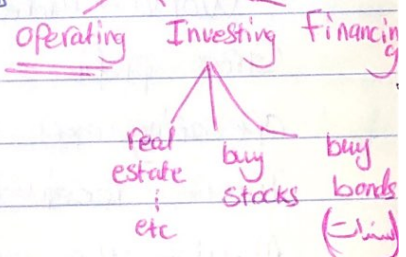 Operating Investing Financing
real estate ; etc
buy stocks
buy bonds (سندات)